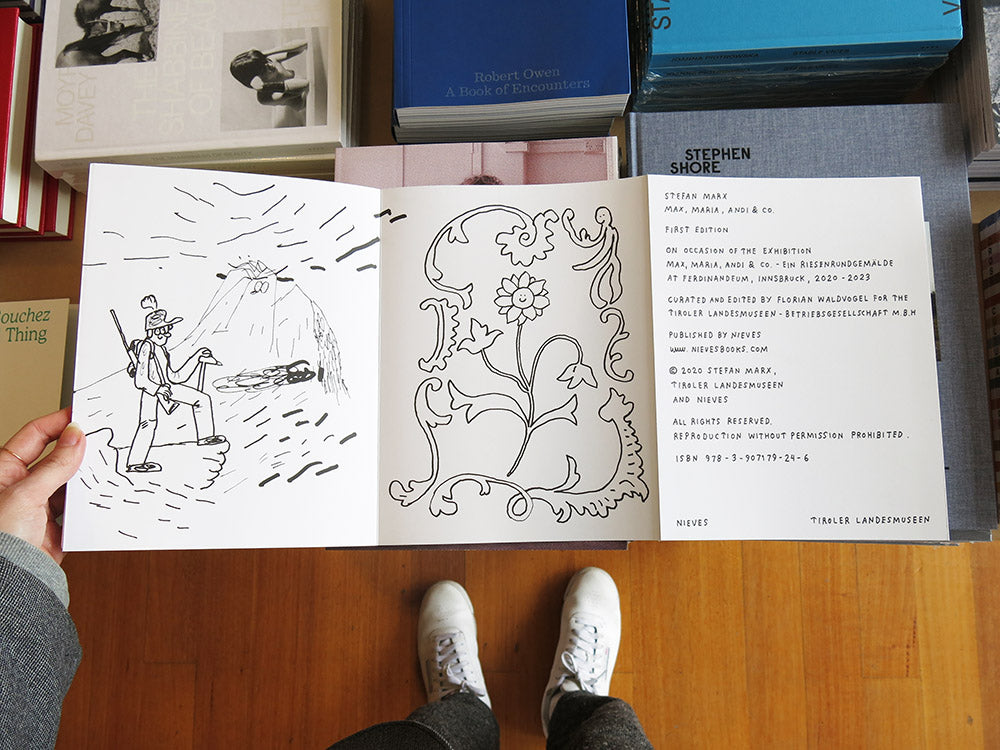 MOYRA
DAVEY
THE
SHABBINESS
OF BEAUTY
Robert Owen
A Book of Encounters
STA
V
JOANNA PIOTROWSKA
STABLE VICES
STEPHEN
SHORE
ouchez
Thing
STEFAN MARX
MAX, MARIA, ANDI & CO.
FIRST EDITION
ON OCCASION OF THE EXHIBITION
MAX, MARIA, ANDI & CO. - EIN RIESENRUNDGEMÄLDE
AT FERDINANDEUM, INNSBRUCK, 2020 - 2023
CURATED AND EDITED BY FLORIAN WALDVOGEL FOR THE
TIROLER LANDESMUSEEN - BETRIEBSGESELLSCHAFT M.B.H
PUBLISHED BY NIEVES
WWW.NIEVESBOOKS.COM
© 2020 STEFAN MARX,
TIROLER LANDESMUSEEN
AND NIEVES
ALL RIGHTS RESERVED.
REPRODUCTION WITHOUT PERMISSION PROHIBITED.
ISBN 978-3-907179-24-6
NIEVES
TIROLER LANDESMUSEEN